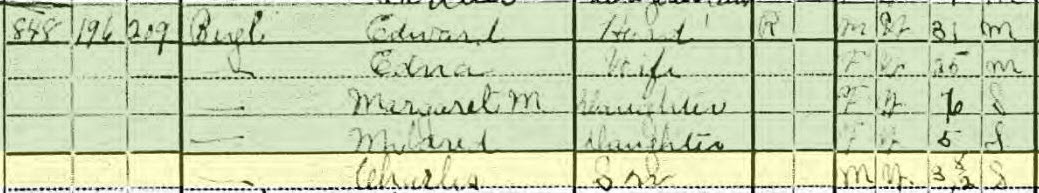 848 196 209 Bugl Edward Head R M W 31 M
— Edna Wife F W 25 M
— Margaret M Daughter F W 6 S
— Mildred Daughter F W 5 S
— Charles Son M W 3 S